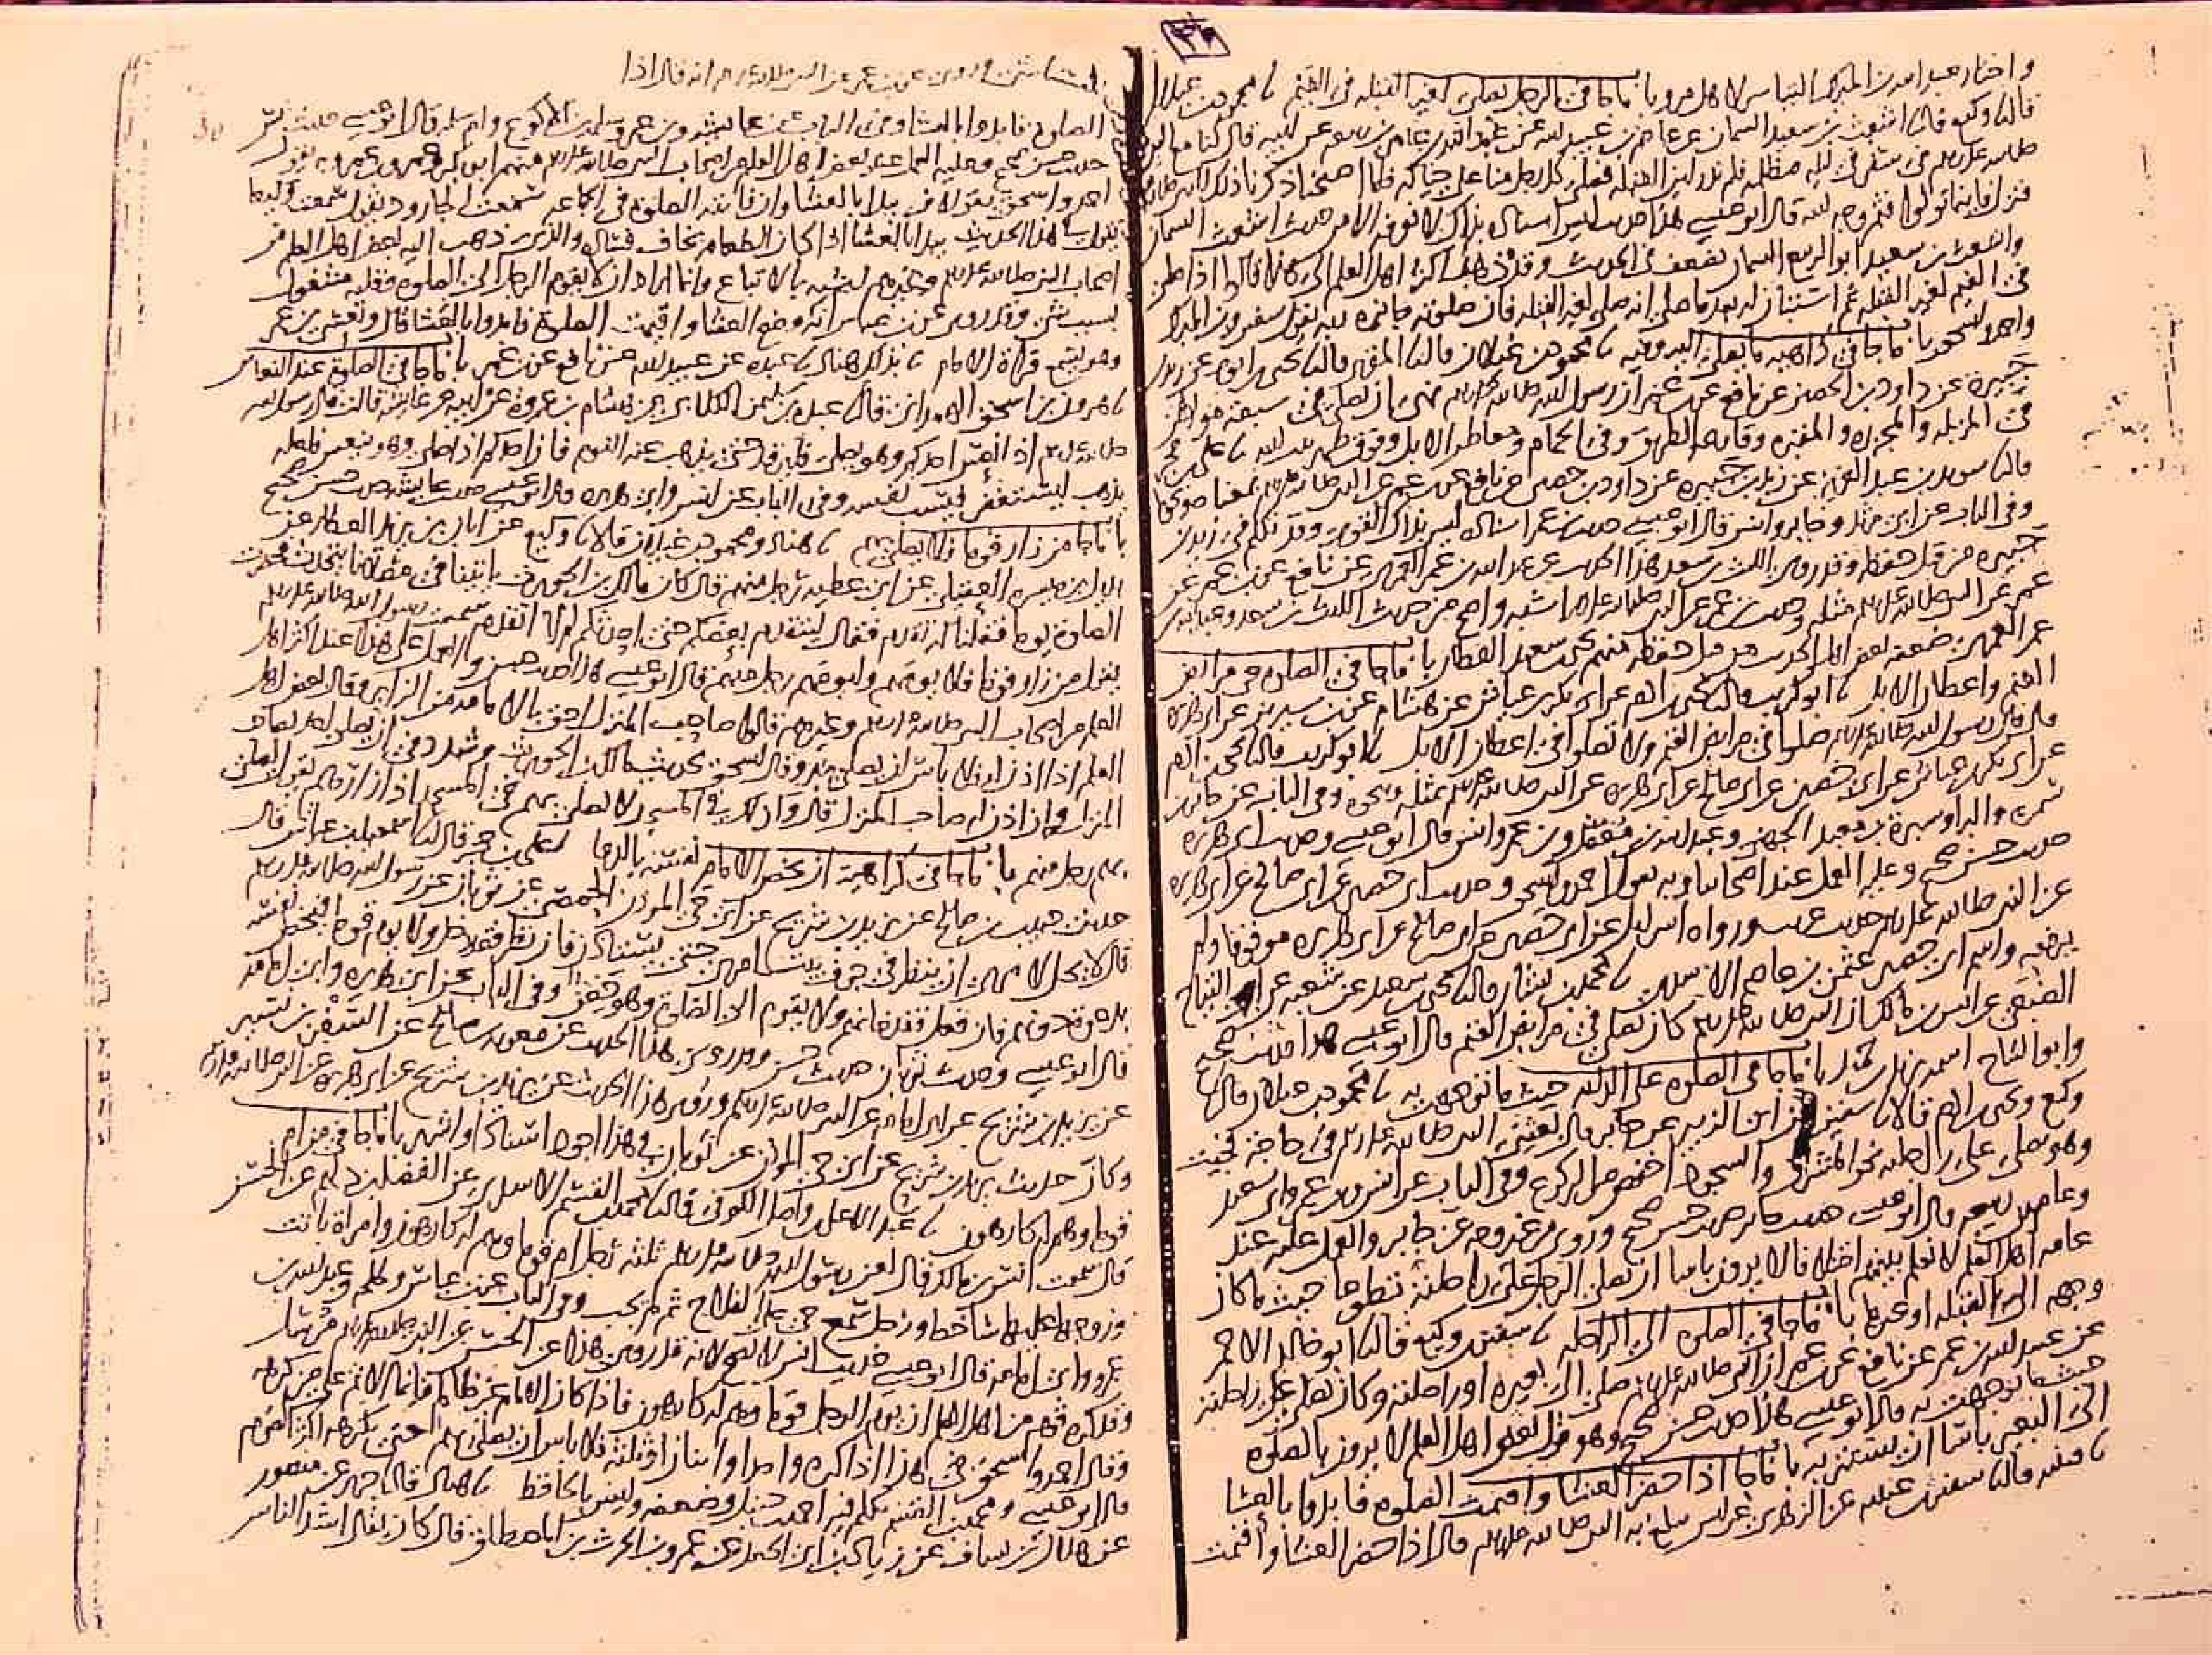 ٣٤
واختار عبد الله بن المبارك التيامن لأهل مرو باب ما جا في الرجل يصلي لغير القبلة في الغيم نا محمود بن غيلان
قال نا وكيع قال نا اشعث بن سعيد السمان عن عاصم بن عبيد الله عن عبد الله بن عامر بن ربيعة عن ابيه قال كنا مع النبي
صلى الله عليه وسلم في سفر في ليلة مظلمة فلم ندر اين القبلة فصلى كل رجل منا على حياله فلما اصبحنا ذكرنا ذلك للنبي صلى الله
فنزل فاينما تولوا فثم وجه الله قال ابو عيسى هذا حديث ليس اسناده بذاك لا نعرفه الا من حديث اشعث السمان
واشعث بن سعيد ابو الربيع السمان يضعف في الحديث وقد ذهب اكثر اهل العلم الى هذا قالوا اذا صلى
في الغيم لغير القبلة ثم استبان له بعد ما صلى انه صلى لغير القبلة فان صلوته جائزة وبه يقول سفين وابن المبارك
واحمد واسحق باب ما جا في كراهية ما يصلى اليه وفيه نا محمود بن غيلان قال نا المقرى قال نا يحيى بن ايوب عن زيد بن
جبيرة عن داود بن الحصين عن نافع عن ابن عمر ان رسول الله صلى الله عليه وسلم نهى ان يصلى في سبعة مواطن
في المزبلة والمجزرة والمقبرة وقارعة الطريق وفي الحمام ومعاطن الابل وفوق ظهر بيت الله نا علي بن حجر
قال نا سويد بن عبد العزيز عن زيد بن جبيرة عن داود بن حصين عن نافع عن ابن عمر عن النبي صلى الله عليه وسلم بمعناه ونحوه
وفي الباب عن ابي مرثد وجابر وانس قال ابو عيسى حديث ابن عمر اسناده ليس بذاك القوي وقد تكلم في زيد بن
جبيرة من قبل حفظه وقد روى الليث بن سعد هذا الحديث عن عبد الله بن عمر العمري عن نافع عن ابن عمر عن
عمر عن النبي صلى الله عليه وسلم مثله وحديث ابن عمر عن النبي صلى الله عليه وسلم اشبه واصح من حديث الليث بن سعد وعبد الله بن
عمر العمري ضعفه بعض اهل الحديث من قبل حفظه منهم يحيى بن سعيد القطان باب ما جا في الصلوة في مرابض
الغنم واعطان الابل نا ابو كريب قال نا يحيى بن ادم عن ابي بكر بن عياش عن هشام عن ابن سيرين عن ابي هريرة
قال قال رسول الله صلى الله عليه وسلم صلوا في مرابض الغنم ولا تصلوا في اعطان الابل نا ابو كريب قال نا يحيى بن ادم
عن ابي بكر بن عياش عن ابي حصين عن ابي صالح عن ابي هريرة عن النبي صلى الله عليه وسلم بمثله ونحوه وفي الباب عن جابر بن
سمرة والبراء وسبرة بن معبد الجهني وعبد الله بن مغفل وابن عمر وانس قال ابو عيسى وحديث ابي هريرة
حديث حسن صحيح وعليه العمل عند اصحابنا وبه يقول احمد واسحق وحديث ابي حصين عن ابي صالح عن ابي هريرة
عن النبي صلى الله عليه وسلم حديث غريب ورواه اسرائيل عن ابي حصين عن ابي صالح عن ابي هريرة موقوفا ولم
يرفعه واسم ابي حصين عثمن بن عاصم الاسدي نا محمد بن بشار قال نا يحيى بن سعيد عن شعبة عن ابي التياح
الضبعي عن انس بن مالك ان النبي صلى الله عليه وسلم كان يصلي في مرابض الغنم قال ابو عيسى هذا حديث صحيح
وابو التياح اسمه يزيد بن حميد باب ما جا في الصلوة على الدابة حيث ما توجهت به نا محمود بن غيلان قال نا
وكيع ويحيى بن ادم قالا نا سفين عن ابي الزبير عن جابر قال بعثني النبي صلى الله عليه وسلم في حاجة فجيت
وهو يصلي على راحلته نحو المشرق والسجود اخفض من الركوع وفي الباب عن انس وابن عمر وابي سعيد
وعامر بن ربيعة قال ابو عيسى حديث جابر حديث حسن صحيح وروي من غير وجه عن جابر والعمل عليه عند
عامة اهل العلم لا نعلم بينهم اختلافا لا يرون باسا ان يصلي الرجل على راحلته تطوعا حيث ما كان
وجهه الى القبلة او غيرها باب ما جا في الصلوة الى الراحلة نا سفين بن وكيع قال نا ابو خالد الاحمر
عن عبيد الله بن عمر عن نافع عن ابن عمر ان النبي صلى الله عليه وسلم صلى الى بعيره او راحلته وكان يصلي على راحلته
حيث ما توجهت به قال ابو عيسى هذا حديث حسن صحيح وهو قول بعض اهل العلم لا يرون بالصلوة
الى البعير باسا ان يستتر به باب ما جا اذا حضر العشا واقيمت الصلوة فابدوا بالعشا
نا قتيبة قال نا سفين بن عيينة عن الزهري عن انس يبلغ به النبي صلى الله عليه وسلم قال اذا حضر العشا واقيمت
وروي عن ابن عمر عن النبي صلى الله عليه وسلم انه قال اذا
الصلوة فابدوا بالعشا وفي الباب عن عايشة وابن عمر وسلمة بن الاكوع وام سلمة قال ابو عيسى حديث انس
حديث حسن صحيح وعليه العمل عند بعض اهل العلم من اصحاب النبي صلى الله عليه وسلم منهم ابو بكر وعمر وابن عمر وبه يقول
احمد واسحق يقولان يبدا بالعشا وان فاتته الصلوة في الجماعة سمعت الجارود يقول سمعت وكيعا
يقول في هذا الحديث يبدا بالعشا اذا كان الطعام يخاف فساده والذي ذهب اليه بعض اهل العلم من
اصحاب النبي صلى الله عليه وسلم وغيرهم اشبه بالاتباع وانما ارادوا ان لا يقوم الرجل الى الصلوة وقلبه مشغول
بسبب شي وقد روي عن ابن عباس انه وضع العشا واقيمت الصلوة فابدوا بالعشا قال وتعشى ابن عمر
وهو يسمع قراة الامام نا بذلك هناد نا عبدة عن عبيد الله عن نافع عن ابن عمر باب ما جا في الصلوة عند النعاس
نا هرون بن اسحق الهمداني قال نا عبدة بن سليمن الكلابي عن هشام بن عروة عن ابيه عن عايشة قالت قال رسول الله
صلى الله عليه وسلم اذا نعس احدكم وهو يصلي فليرقد حتى يذهب عنه النوم فان احدكم اذا صلى وهو ينعس فلعله
يذهب ليستغفر فيسب نفسه وفي الباب عن انس وابي هريرة قال ابو عيسى حديث عايشة حديث حسن صحيح
باب ما جا من زار قوما فلا يصل بهم نا هناد ومحمود بن غيلان قالا نا وكيع عن ابان بن يزيد العطار عن
بديل بن ميسرة العقيلي عن ابي عطية رجل منهم قال كان مالك بن الحويرث ياتينا في مصلانا يتحدث فحضرت
الصلوة يوما فقلنا له تقدم فقال ليتقدم بعضكم حتى احدثكم لم لا اتقدم سمعت رسول الله صلى الله عليه وسلم
يقول من زار قوما فلا يومهم وليومهم رجل منهم قال ابو عيسى هذا حديث حسن والعمل على هذا عند اكثر اهل
العلم من اصحاب النبي صلى الله عليه وسلم وغيرهم قالوا صاحب المنزل احق بالامامة من الزاير وقال بعض اهل
العلم اذا اذن له فلا باس ان يصلي به وقال اسحق بحديث مالك بن الحويرث وشدد في ان لا يصلي احد بصاحب
المنزل وان اذن له صاحب المنزل قال وكذلك في المسجد لا يصلي بهم في المسجد اذا زارهم يقول ليصلي
بهم رجل منهم باب ما جا في كراهية ان يخص الامام نفسه بالدعا نا علي بن حجر قال نا اسمعيل بن عياش قال
حدثني حبيب بن صالح عن يزيد بن شريح عن ابي حي الموذن الحمصي عن ثوبان عن رسول الله صلى الله عليه وسلم
قال لا يحل لامرئ ان ينظر في جوف بيت امرئ حتى يستاذن فان نظر فقد دخل ولا يوم قوما فيخص نفسه
بدعوة دونهم فان فعل فقد خانهم ولا يقوم الى الصلوة وهو حقن وفي الباب عن ابي هريرة وابي امامة
قال ابو عيسى وحديث ثوبان حديث حسن وقد روي هذا الحديث عن معوية بن صالح عن السفر بن نسير
عن يزيد بن شريح عن ابي امامة عن النبي صلى الله عليه وسلم وروي هذا الحديث عن يزيد بن شريح عن ابي هريرة عن النبي صلى الله عليه وسلم
وكان حديث يزيد بن شريح عن ابي حي الموذن عن ثوبان في هذا اجود اسنادا واشهر باب ما جا في من ام
قوما وهم له كارهون نا عبد الاعلى بن واصل الكوفي قال نا محمد بن القسم الاسدي عن الفضل بن دلهم عن الحسن
قال سمعت انس بن مالك قال لعن رسول الله صلى الله عليه وسلم ثلثة رجل ام قوما وهم له كارهون وامراة باتت
وزوجها عليها ساخط ورجل سمع حي على الفلاح ثم لم يجب وفي الباب عن ابن عباس وطلحة وعبد الله بن
عمرو وابي امامة قال ابو عيسى حديث انس لا يصح لانه قد روي هذا عن الحسن عن النبي صلى الله عليه وسلم مرسل
وقد كره قوم من اهل العلم ان يوم الرجل قوما وهم له كارهون فاذا كان الامام غير ظالم فانما الاثم على من كرهه
وقال احمد واسحق في هذا اذا كره واحد او اثنان او ثلثة فلا باس ان يصلي بهم حتى يكرهه اكثر القوم
قال ابو عيسى ومحمد بن القسم تكلم فيه احمد بن حنبل وضعفه وليس بالحافظ نا هناد قال نا جرير عن منصور
عن هلال بن يساف عن زياد بن ابي الجعد عن عمرو بن الحرث بن المصطلق قال كان يقال اشد الناس